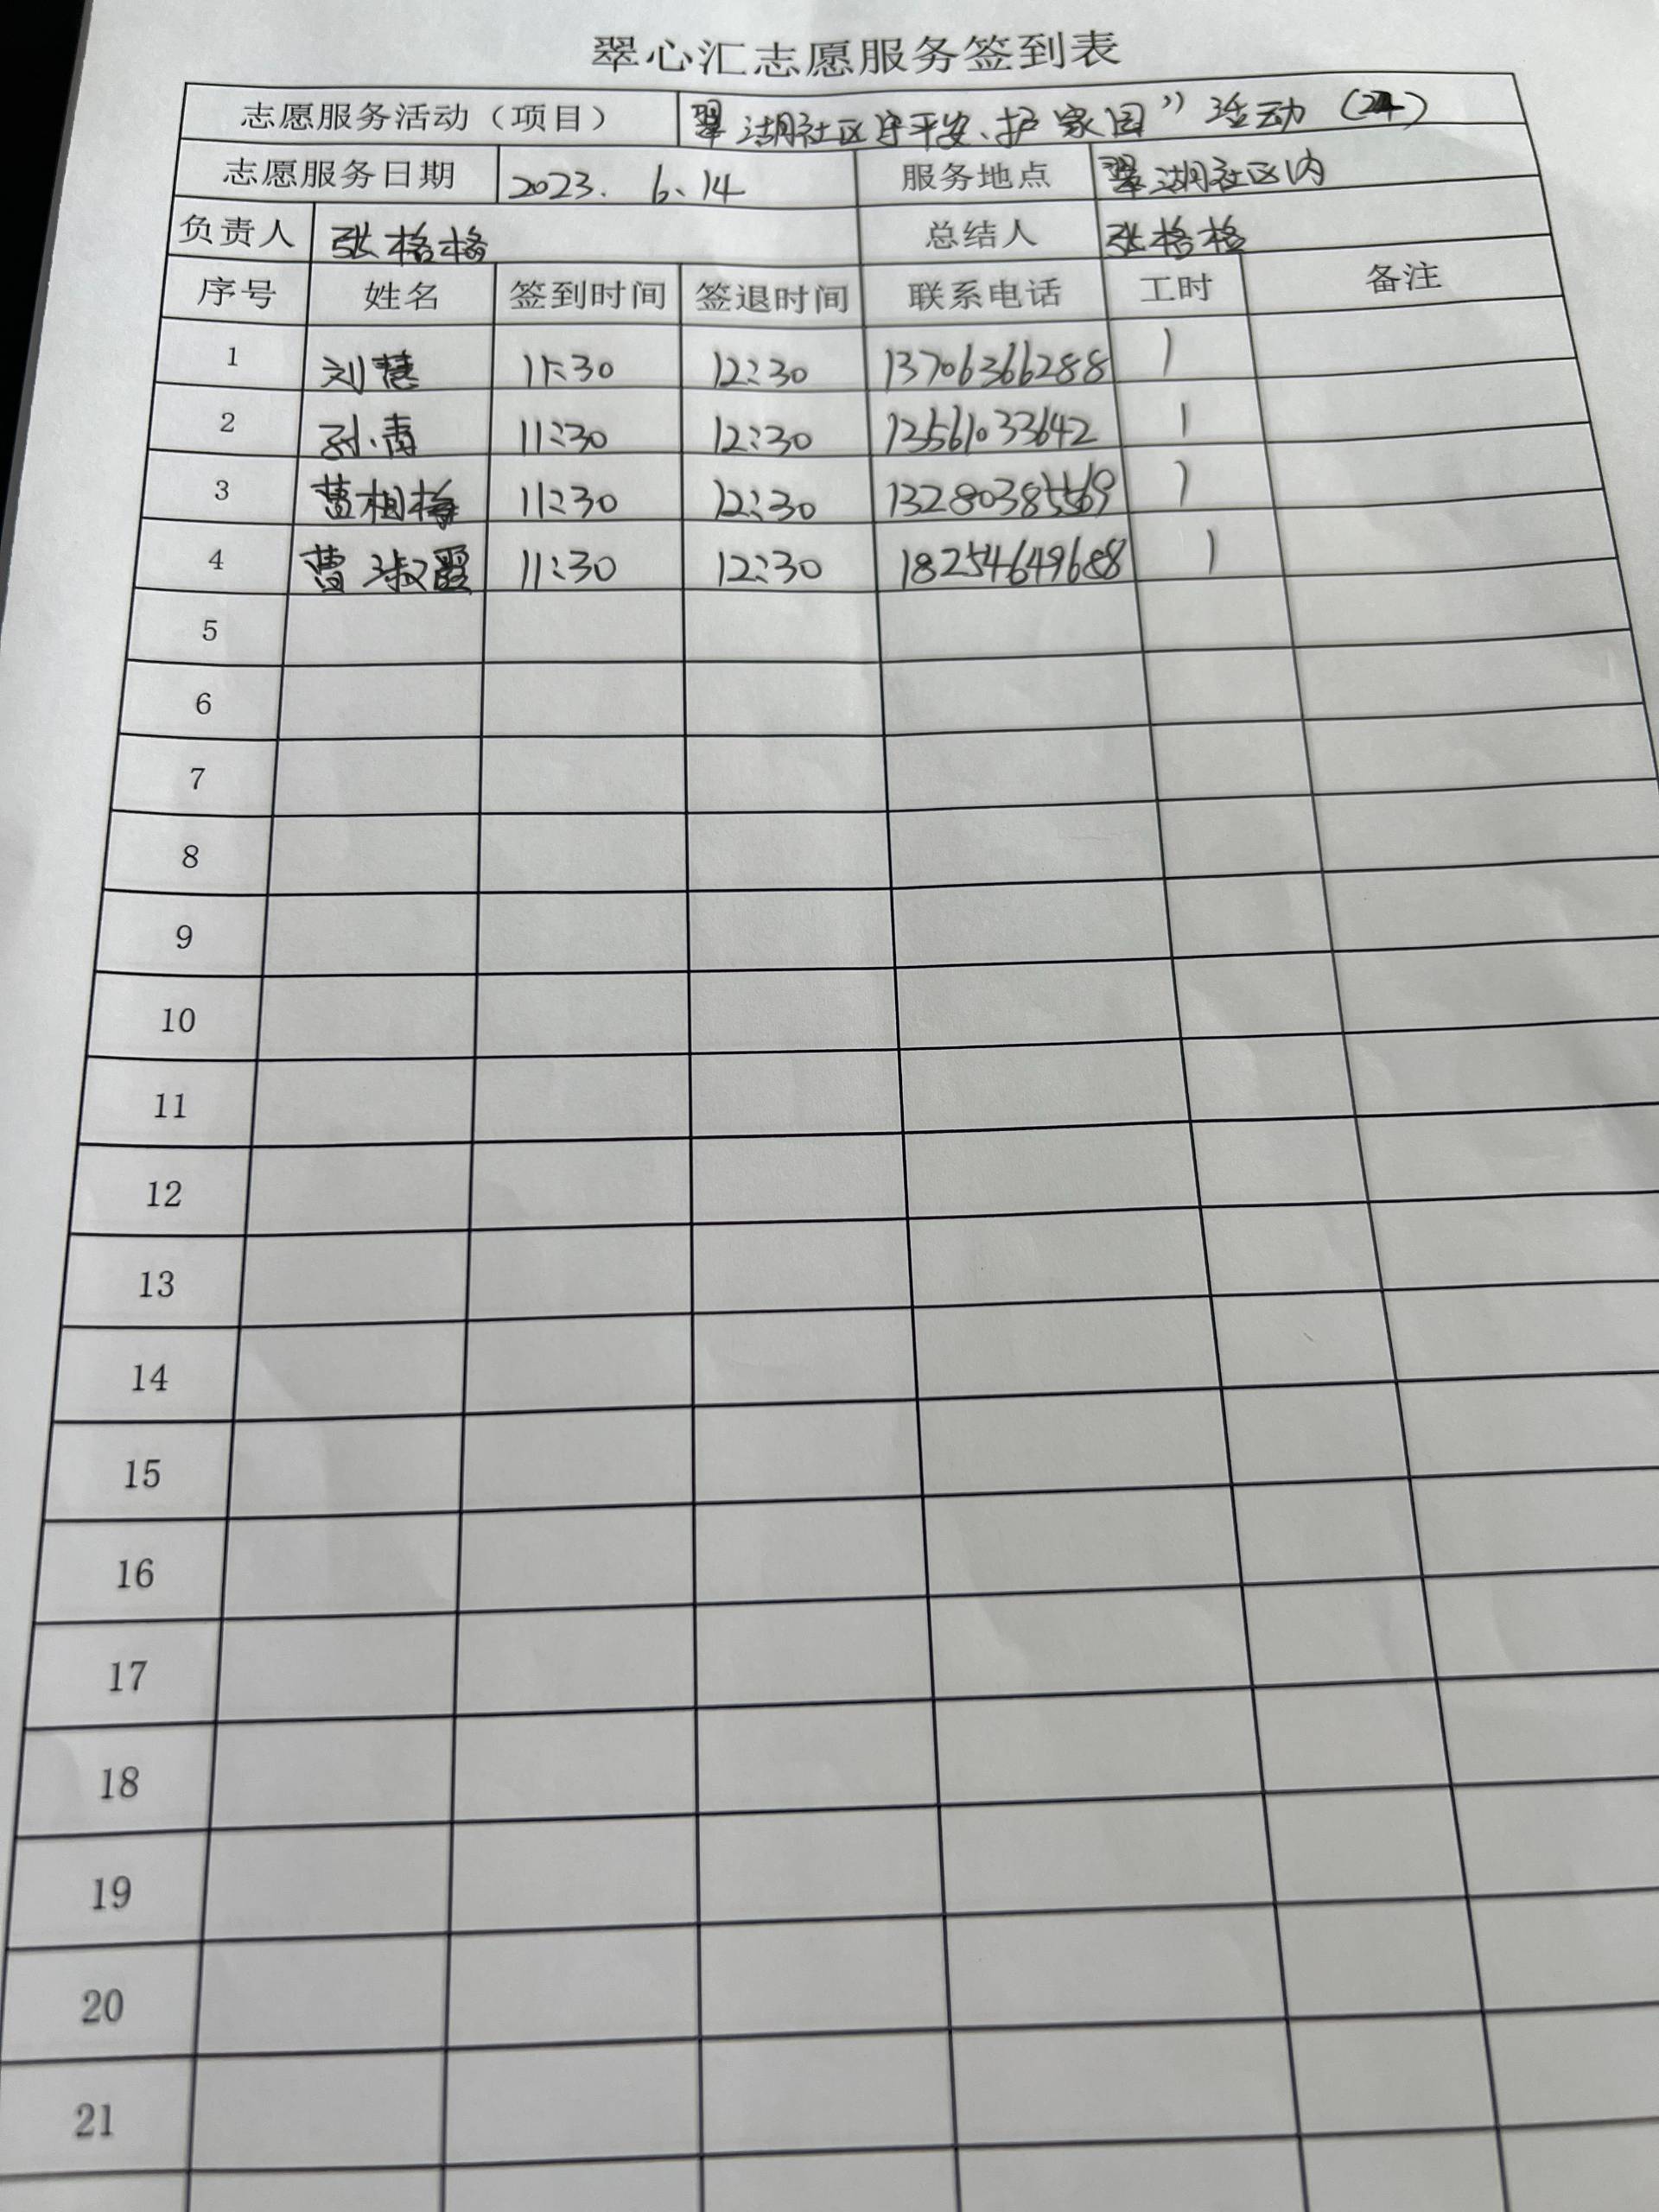 翠心汇志愿服务签到表
志愿服务活动（项目） 翠湖社区守平安、护家园”活动（24）
志愿服务日期 2023. 6.14 服务地点 翠湖社区内
负责人 张格格 总结人 张格格
序号 姓名 签到时间 签退时间 联系电话 工时 备注
1 刘慧 11:30 12:30 13706366288 1
2 孙青 11:30 12:30 13561033642 1
3 黄相梅 11:30 12:30 13280385569 1
4 曹淑霞 11:30 12:30 18254649688 1
5
6
7
8
9
10
11
12
13
14
15
16
17
18
19
20
21